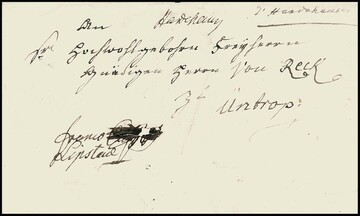 An
Sr Hochwohlgebohrn Freyherrn
Gnädigen Herrn von Reck
Zu Üntrop:
franco
Lipstad